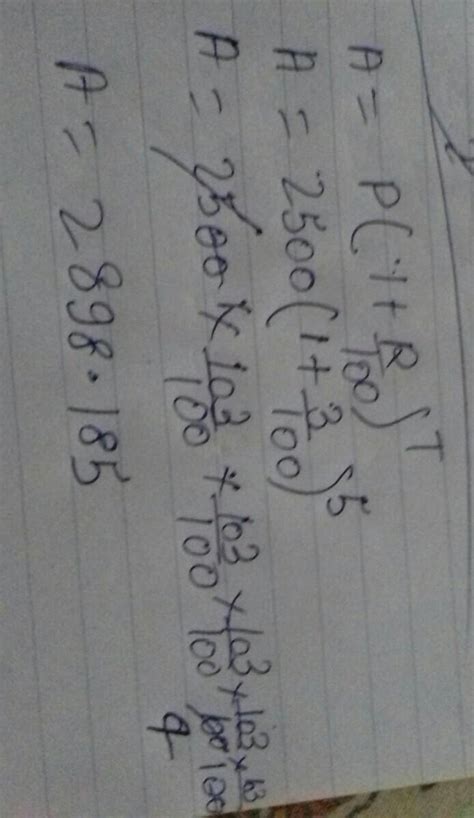 A = P(1 + R/100)^T
A = 2500(1 + 3/100)^5
A = 2500 × 103/100 × 103/100 × 103/100 × 103/100 × 103/100
4
A = 2898.185